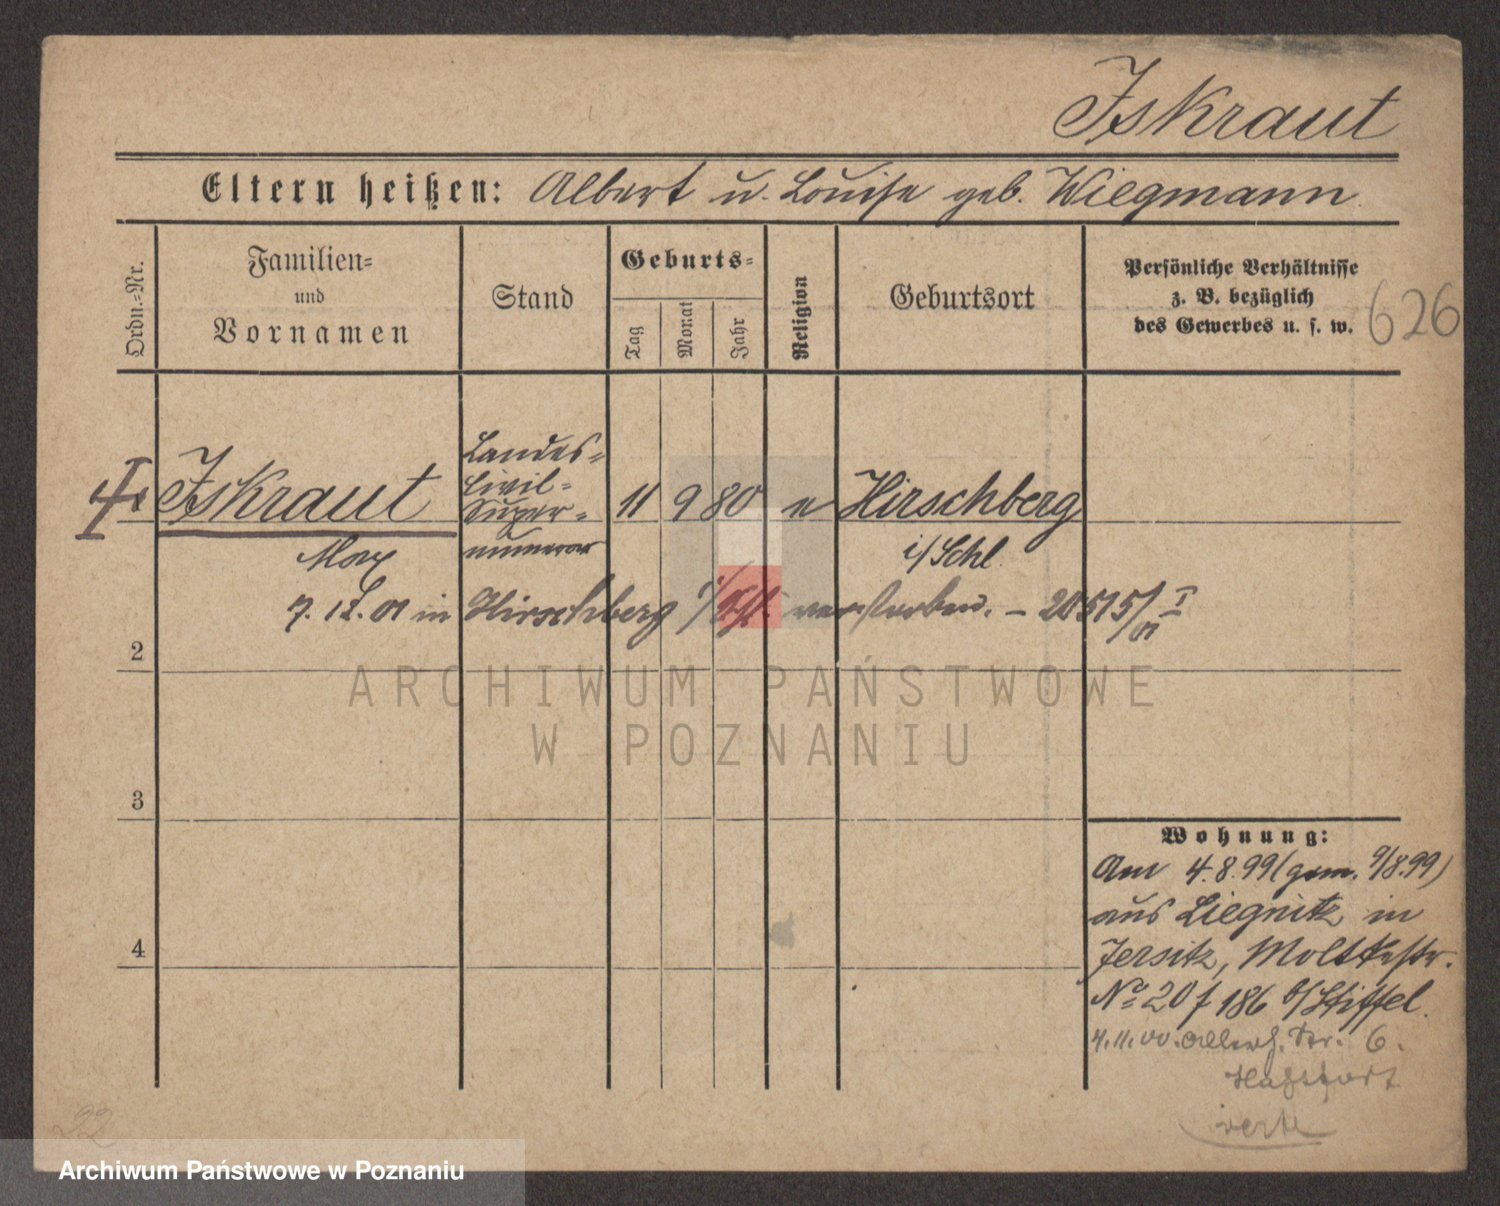 Iskraut
Eltern heißen: Albert u. Louise geb. Wiegmann.
Ordn.=Nr.
Familien=
und
Vornamen
Stand
Geburts=
Tag
Monat
Jahr
Religion
Geburtsort
Persönliche Verhältnisse
z. B. bezüglich
des Gewerbes u. s. w.
626
Iskraut
Max
Landes=
Civil=
Super=
numerar
11 9 80
Hirschberg
i/Schl.
7. 12. 01 in Hirschberg i/Schl. verstorben. – 20515/01 I
2
3
4
Wohnung:
Am 4.8.99 (gem. 9/8.99)
aus Liegnitz in
Jersitz, Moltkestr.
No 20 f 186 b/Stiffel.
4.11.00. Str. 6.
verte
22
ARCHIWUM PAŃSTWOWE
W POZNANIU
Archiwum Państwowe w Poznaniu